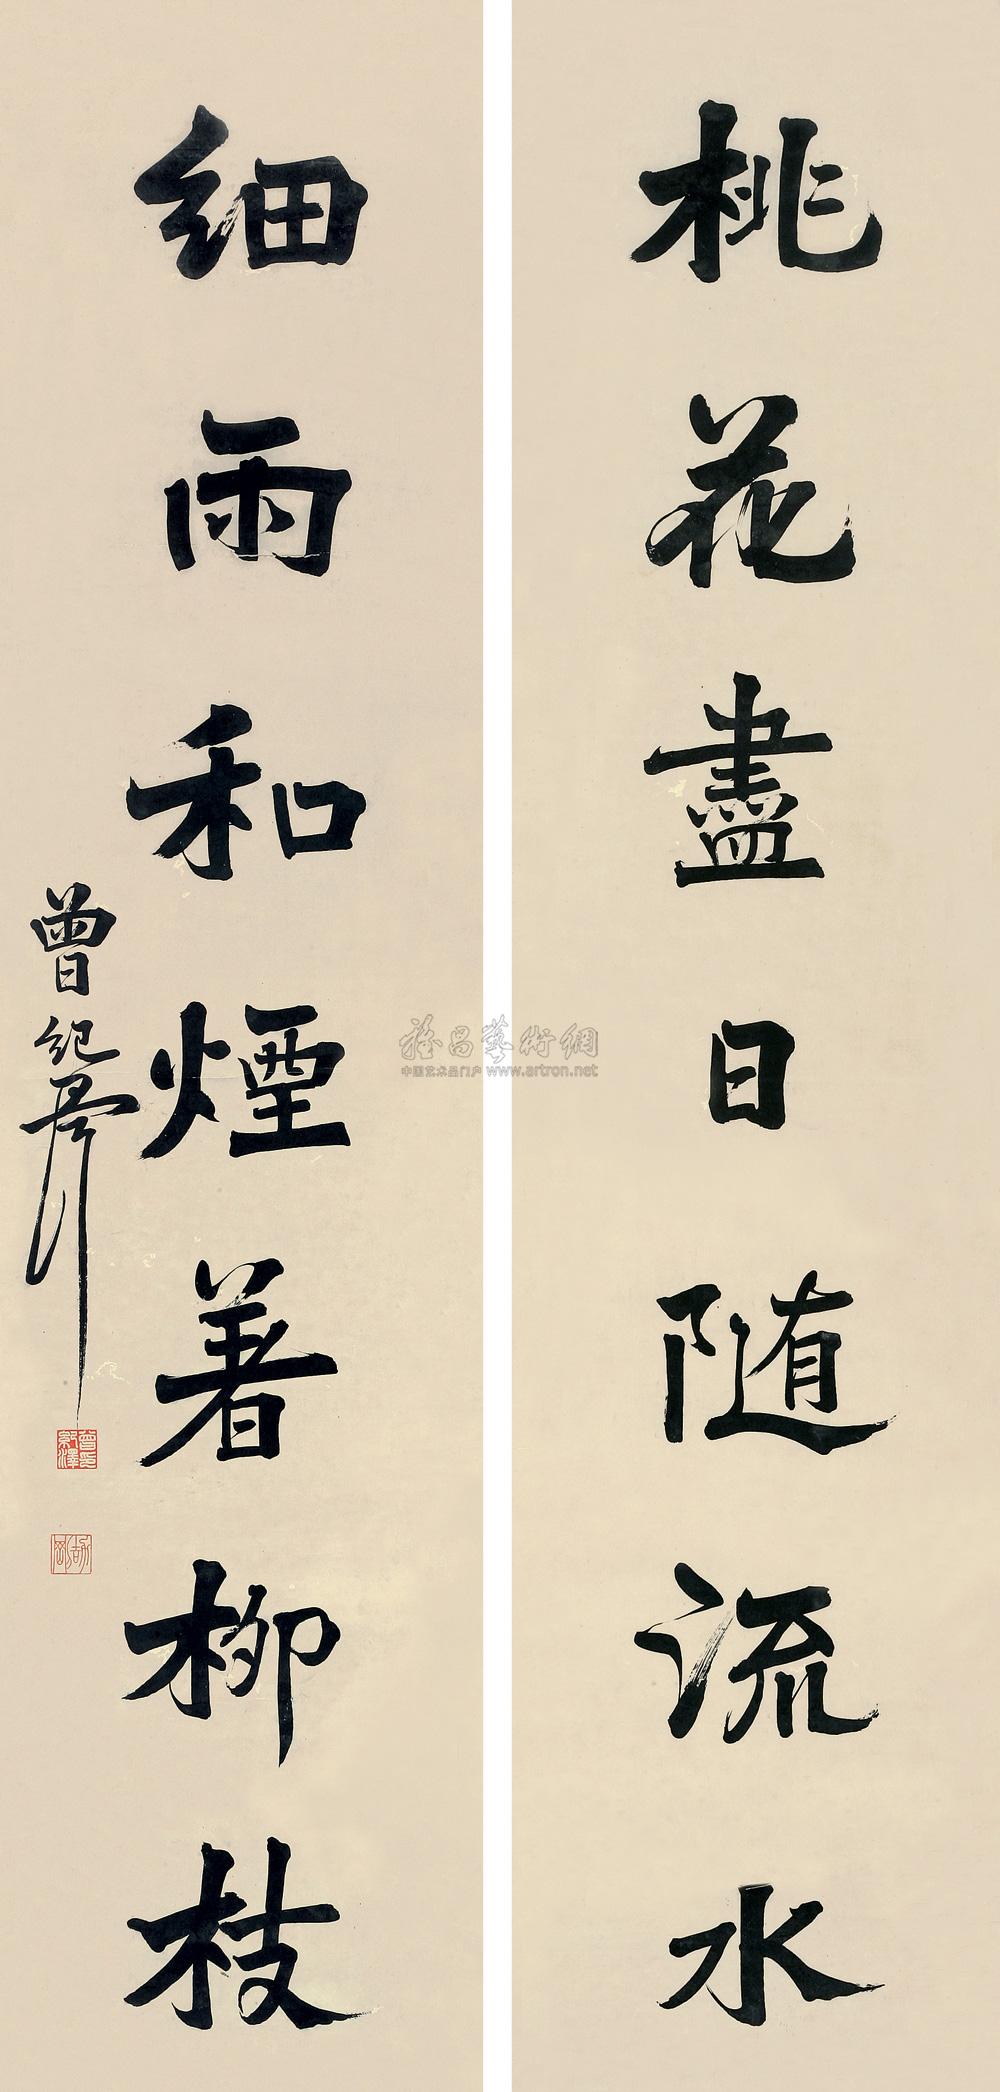 桃花盡日随流水
細雨和煙著柳枝
曾紀澤
曾紀澤印
劼剛
雅昌藝術網
中国艺术品门户 www.artron.net